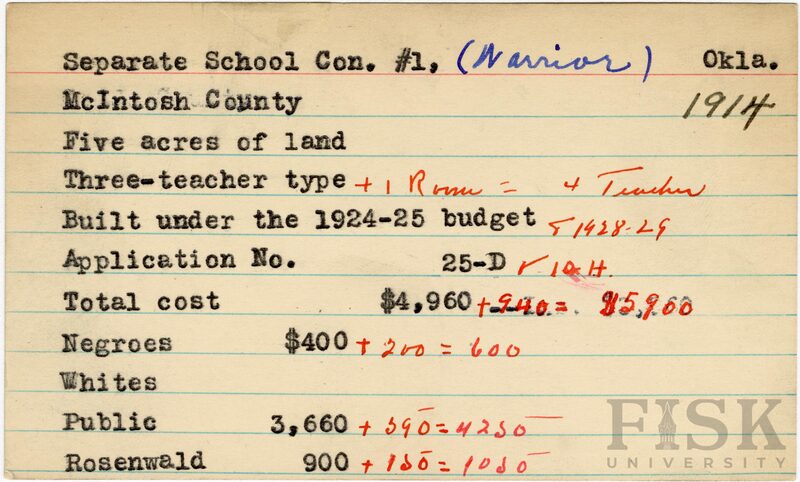 Separate School Con. #1, (Warrior) Okla.
McIntosh County 1914
Five acres of land
Three-teacher type + 1 Room = 4 Teacher
Built under the 1924-25 budget & 1928-29
Application No. 25-D & 10 H.
Total cost $4,960 + 940 = $5,900
Negroes $400 + 200 = 600
Whites
Public 3,660 + 590 = 4250
Rosenwald 900 + 150 = 1050
FISK
UNIVERSITY